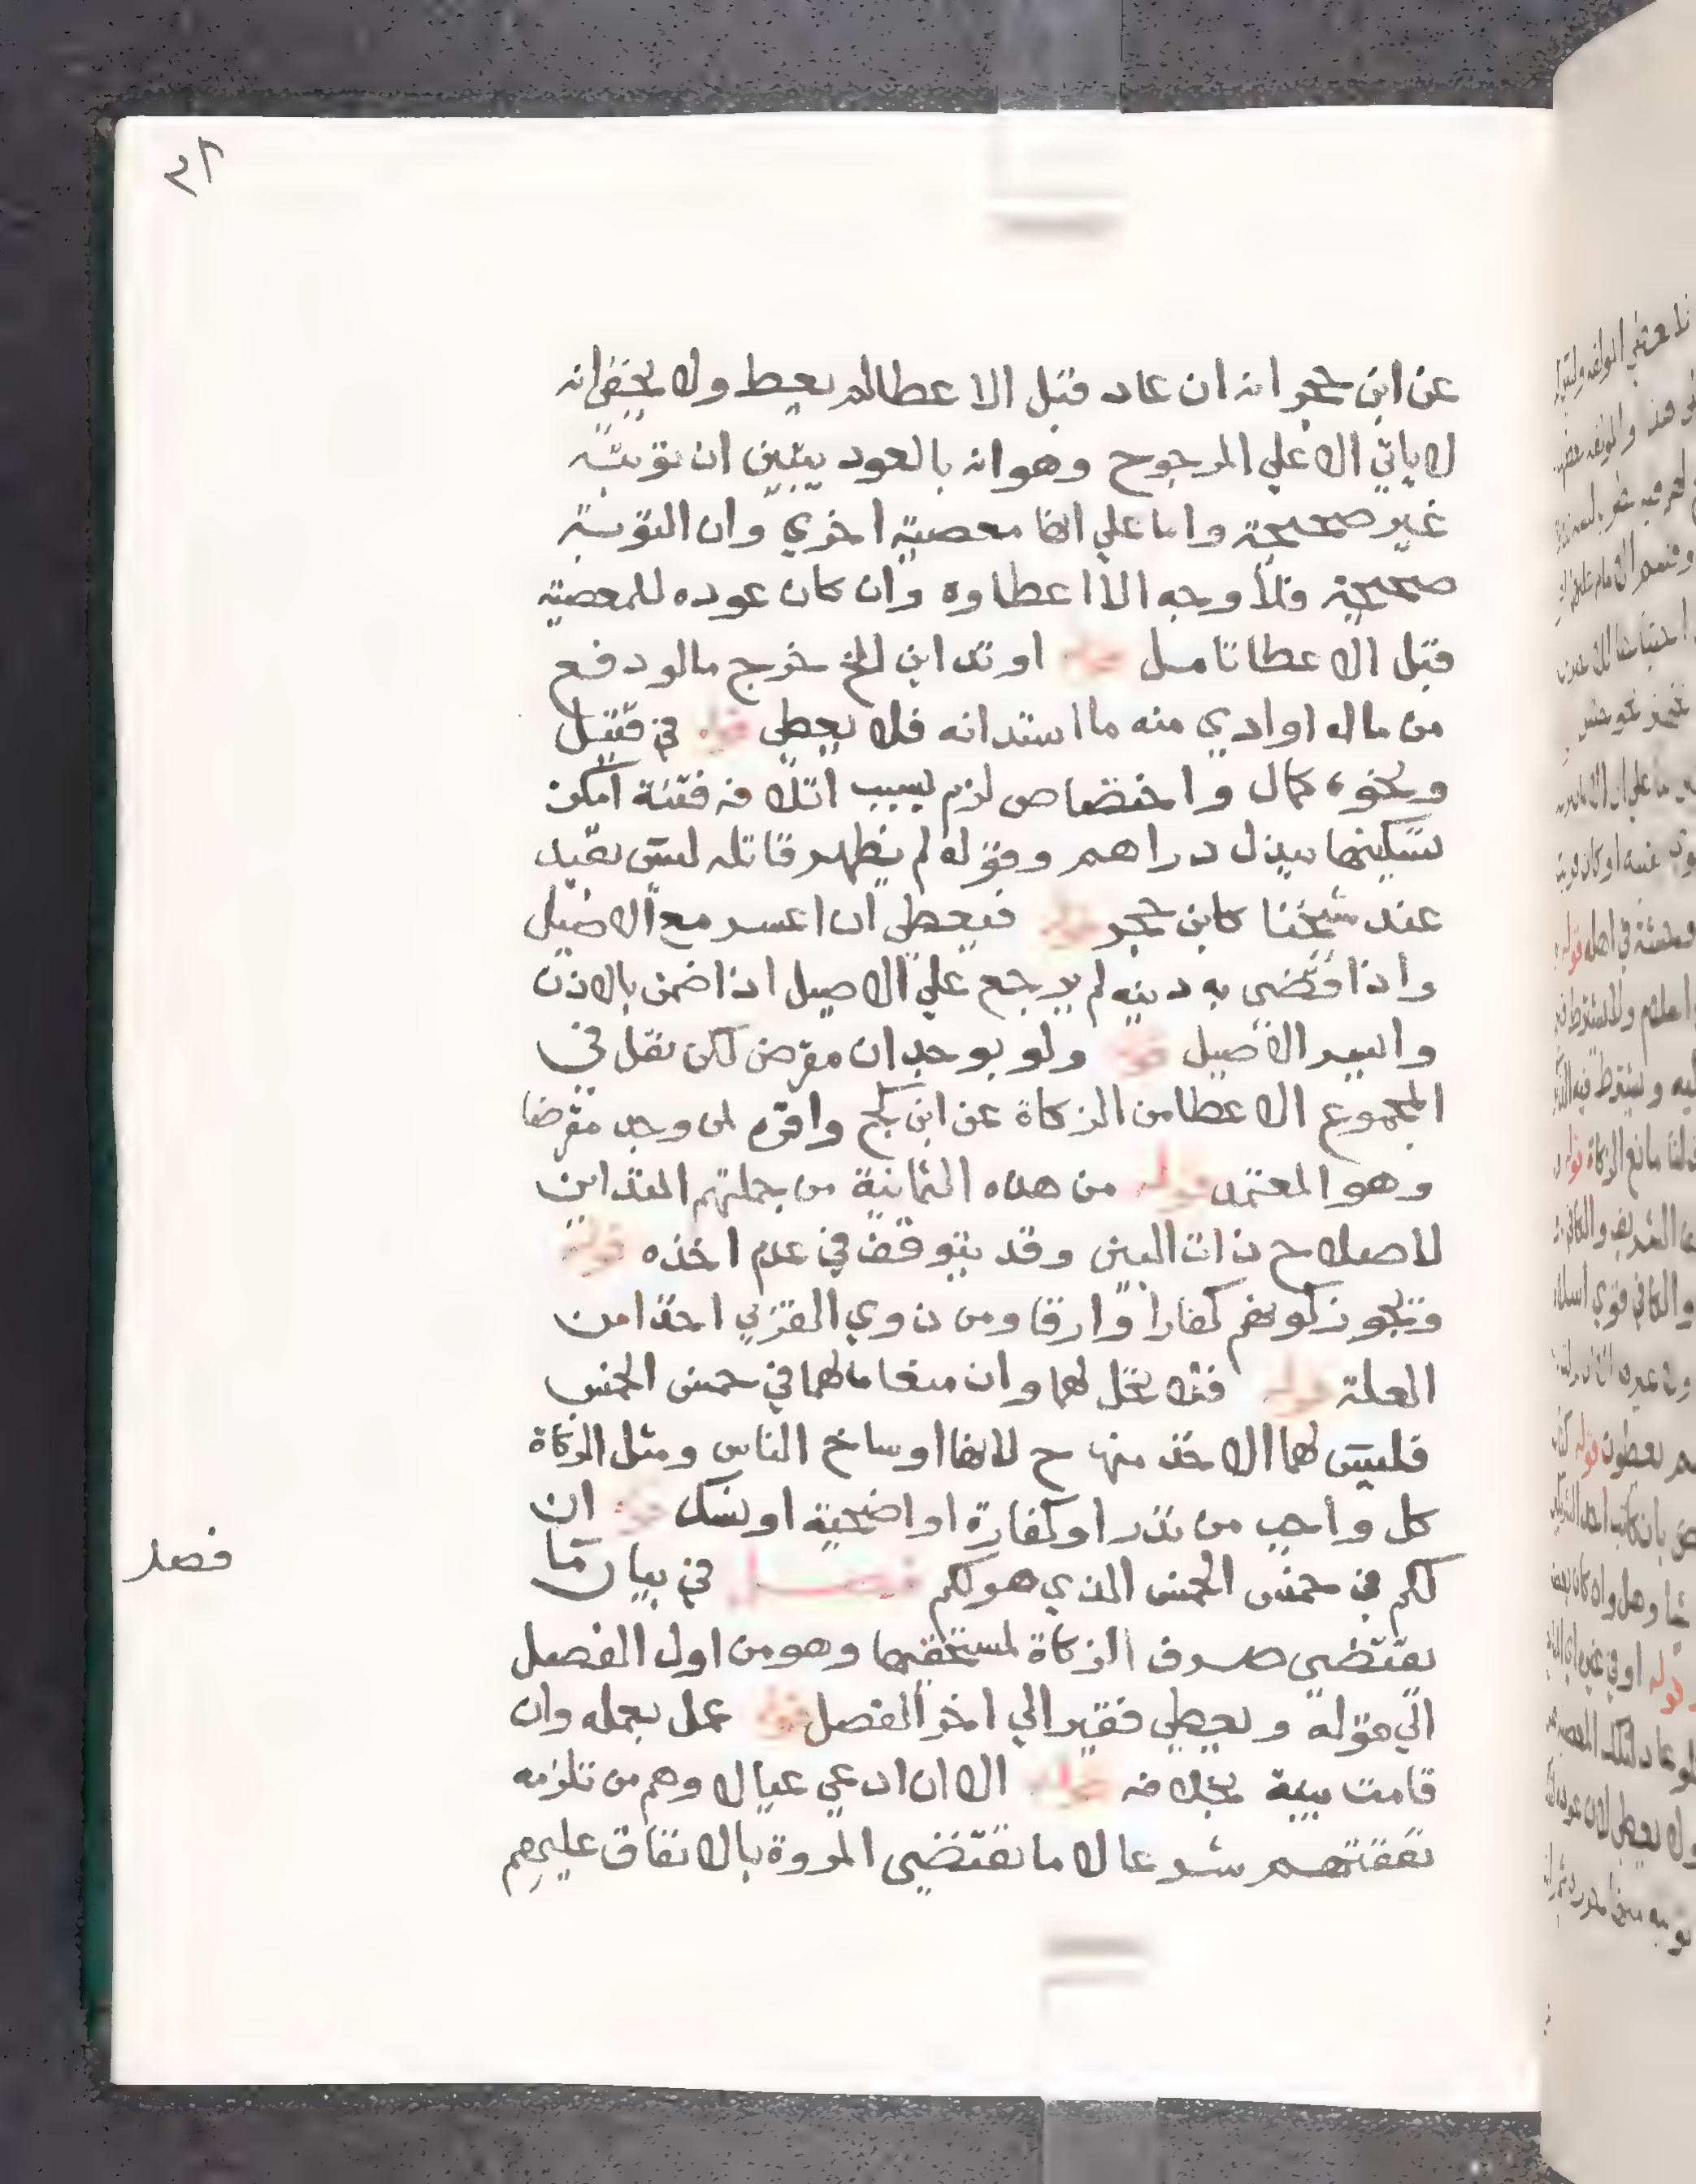 ٣٢
عن ابن حجر انه ان عاد قبل الاعطا لم يعط ولا يخفي انه
لا ياتي الا علي المرجوح وهو انه بالعود يتبين ان توبته
غير صحيحة واما علي انها معصية اخري وان التوبة
صحيحة فلا وجه الا اعطاوه وان كان عوده للمعصية
قبل الاعطا تامل قوله او تداين الخ خرج ما لو دفع
من ماله او ادي منه ما استدانه فلا يعطي قوله في قتيل
ونحوه كمال واختصاص لزم بسبب اتلافه فتنة امكن
تسكينها ببذل دراهم وقوله لم يظهر قاتله ليس بقيد
عند شيخنا كابن حجر قوله فيعطي ان اعسر مع الاصيل
واذا قضي به دينه لم يرجع علي الاصيل اذا ضمن بالاذن
وايسر الاصيل قوله ولو بوجدان مقرض لكن نقل في
المجموع الاعطا من الزكاة عن ابن كج واقره لمن وجد مقرضا
وهو المعتمد قوله من هذه الثمانية من جملتهم المتداين
لاصلاح ذات البين وقد يتوقف في عدم اخذه قوله
وتجوز كونهم كفارا وارقا ومن ذوي القربي اخذا من
العلة قوله فلا تحل لهما وان منعا مالهما في خمس الخمس
فليس لهما الاخذ منها ح لانها اوساخ الناس ومثل الزكاة
كل واجب من نذر او كفارة او اضحية او نسك قوله ان
لكم في خمس الخمس الذي هو لكم فصل في بيان ما
يقتضي صرف الزكاة لمستحقيها وهو من اول الفصل
الي قوله ويعطي فقير الي اخر الفصل قوله عمل بعمله وان
قامت بينة بخلافه قوله الا ان ادعي عيالا وهم من تلزمه
نفقتهم شرعا لا ما تقتضي المروة بالانفاق عليهم
فصل